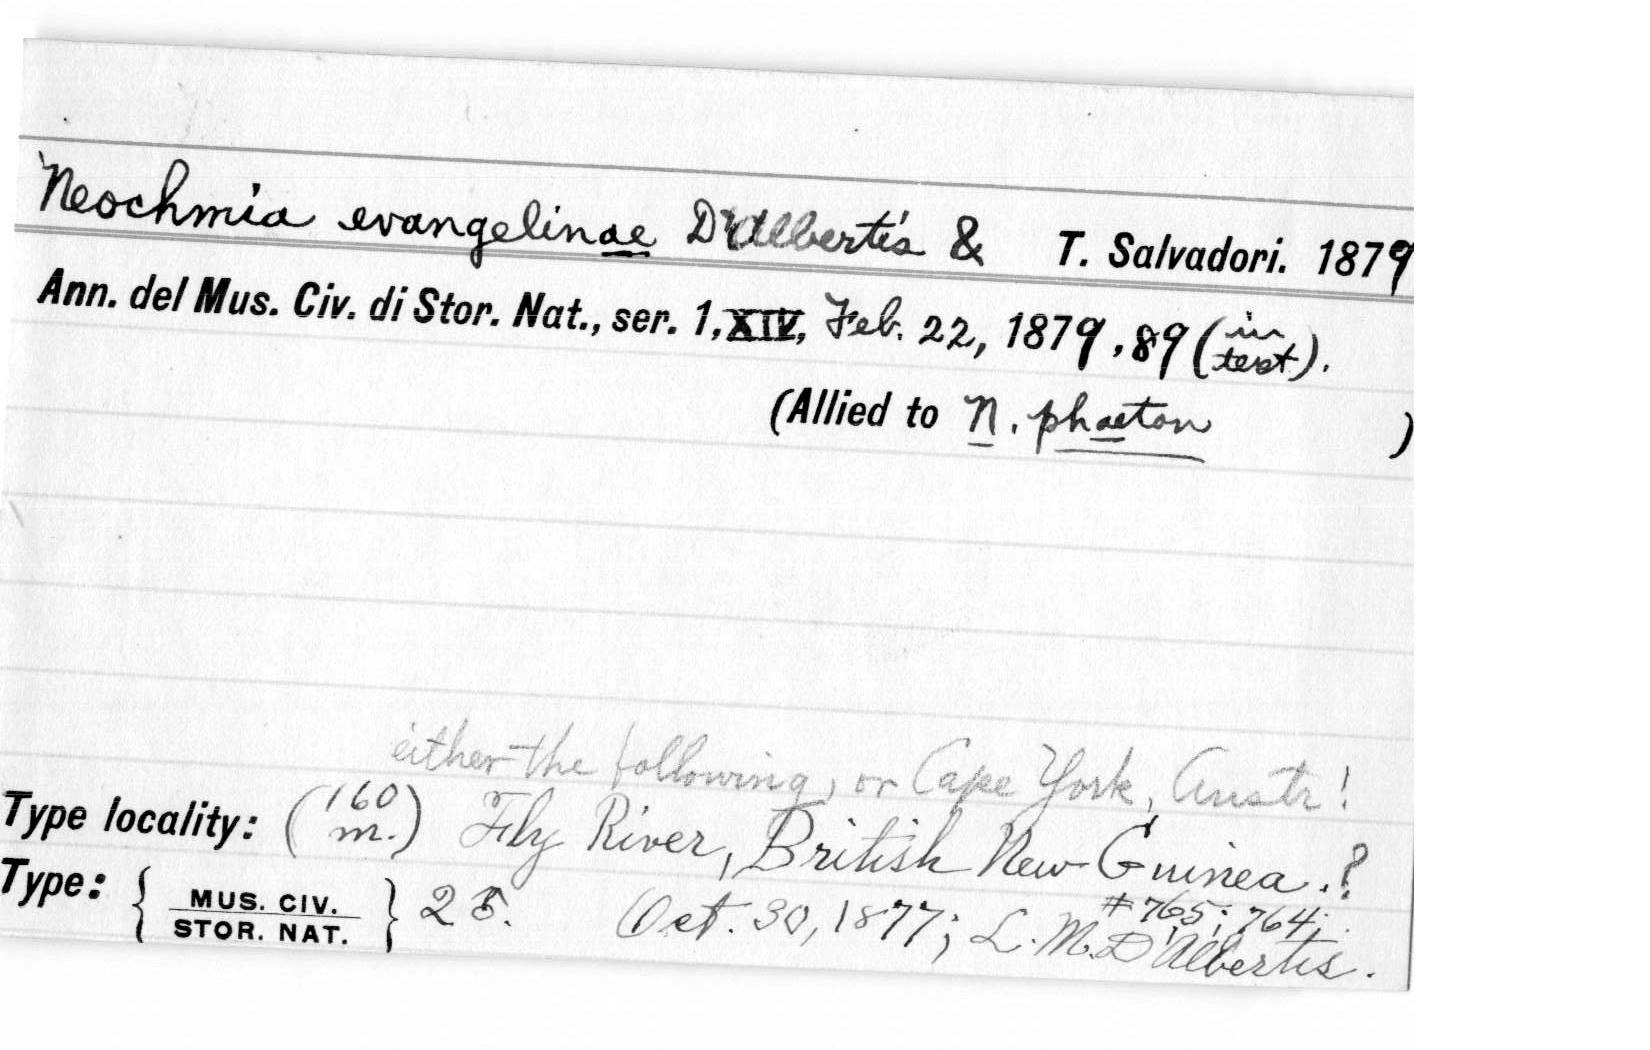 Neochmia evangelinae D'Albertis & T. Salvadori. 1879
Ann. del Mus. Civ. di Stor. Nat., ser. 1, XIV, Feb. 22, 1879, 89 (in text).
(Allied to N. phaeton )
either the following, or Cape York, Austr!
Type locality: (160 m.) Fly River, British New Guinea.?
#765; 764;
Type: { MUS. CIV. STOR. NAT. } Oct. 30, 1877; L. M. D'Albertis.